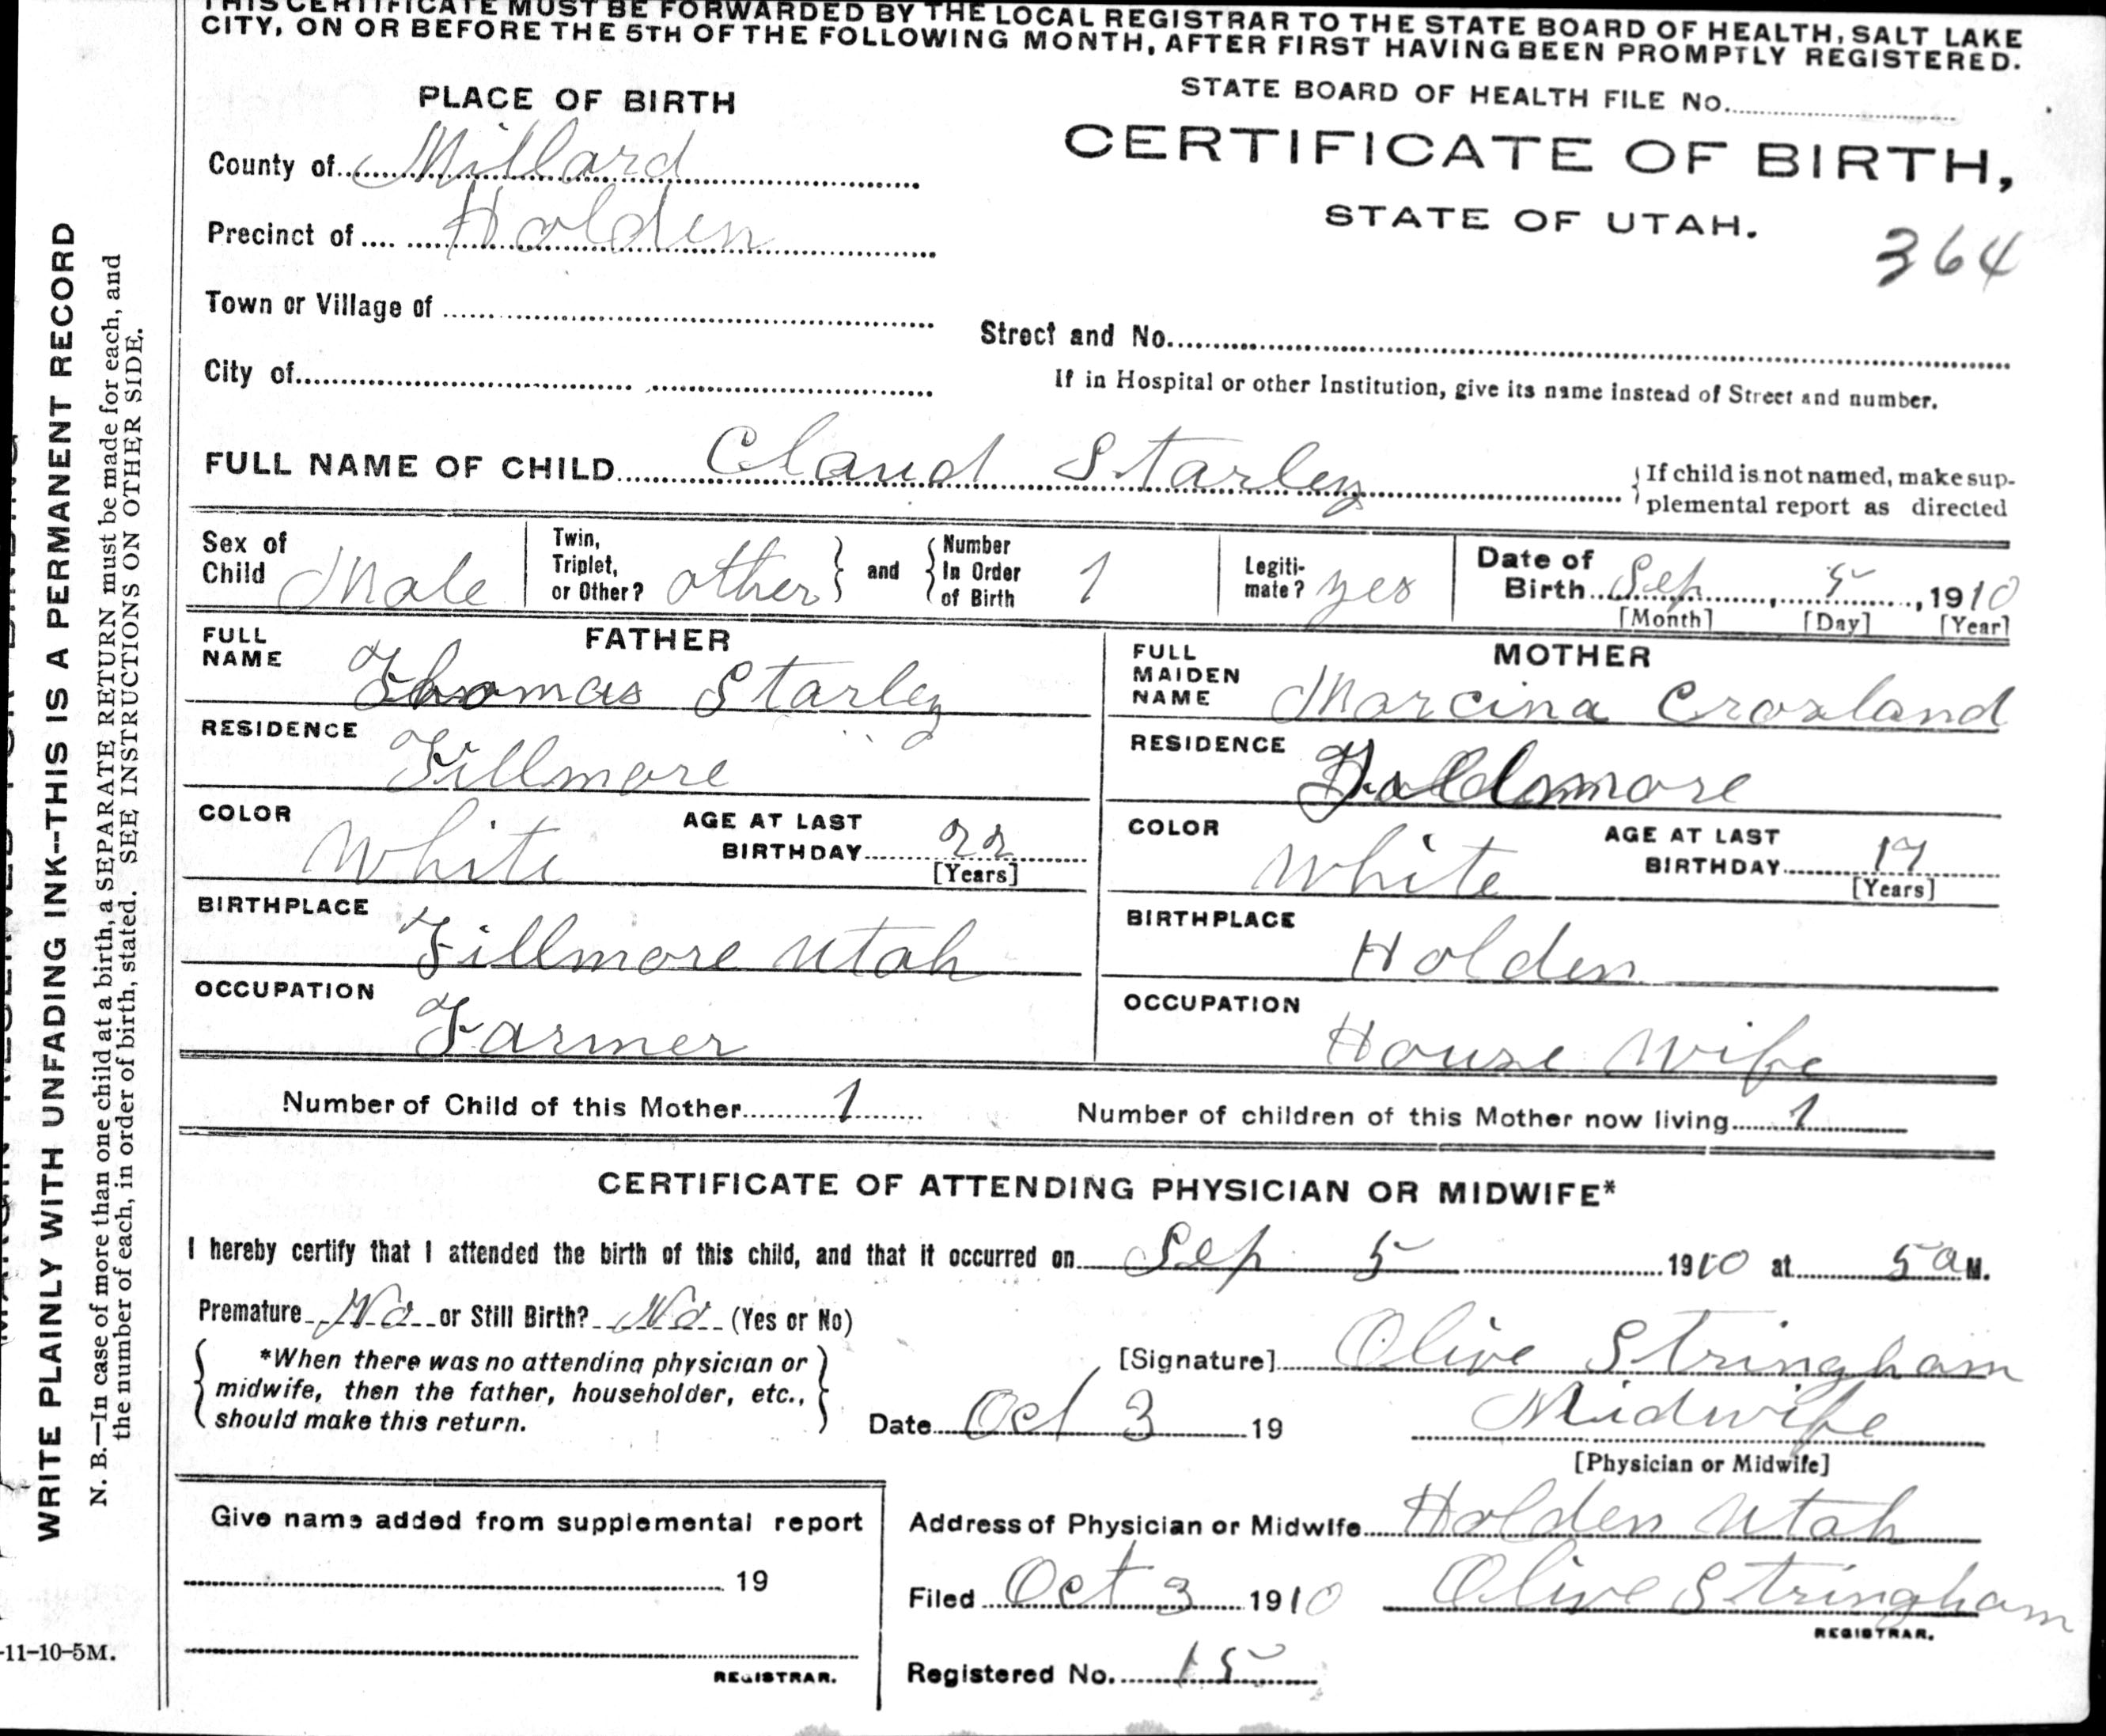 THIS CERTIFICATE MUST BE FORWARDED BY THE LOCAL REGISTRAR TO THE STATE BOARD OF HEALTH, SALT LAKE
CITY, ON OR BEFORE THE 5TH OF THE FOLLOWING MONTH, AFTER FIRST HAVING BEEN PROMPTLY REGISTERED.
PLACE OF BIRTH
STATE BOARD OF HEALTH FILE No.
CERTIFICATE OF BIRTH,
STATE OF UTAH.
364
County of Millard
Precinct of Holden
Town or Village of
Street and No.
City of
If in Hospital or other Institution, give its name instead of Street and number.
FULL NAME OF CHILD Claud Starley
If child is not named, make sup-
plemental report as directed
Sex of Child Male
Twin, Triplet, or Other? other
and
Number In Order of Birth 1
Legiti-mate? yes
Date of Birth Sep, 5, 1910
[Month] [Day] [Year]
FATHER
FULL NAME Thomas Starley
RESIDENCE Fillmore
COLOR White
AGE AT LAST BIRTHDAY 22
[Years]
BIRTHPLACE Fillmore Utah
OCCUPATION Farmer
MOTHER
FULL MAIDEN NAME Marcina Croxland
RESIDENCE
COLOR White
AGE AT LAST BIRTHDAY 17
[Years]
BIRTHPLACE Holden
OCCUPATION House Wife
Number of Child of this Mother 1
Number of children of this Mother now living 1
CERTIFICATE OF ATTENDING PHYSICIAN OR MIDWIFE*
I hereby certify that I attended the birth of this child, and that it occurred on Sep 5 1910 at 5 a M.
Premature No or Still Birth? No (Yes or No)
*When there was no attending physician or
midwife, then the father, householder, etc.,
should make this return.
[Signature] Olive Stringham
Date Oct 3 19
Midwife
[Physician or Midwife]
Give name added from supplemental report
19
REGISTRAR.
Address of Physician or Midwife Holden Utah
Filed Oct 3 1910 Olive Stringham
REGISTRAR.
Registered No. 15
WRITE PLAINLY WITH UNFADING INK--THIS IS A PERMANENT RECORD
N. B.—In case of more than one child at a birth, a SEPARATE RETURN must be made for each, and
the number of each, in order of birth, stated. SEE INSTRUCTIONS ON OTHER SIDE.
-11-10-5M.